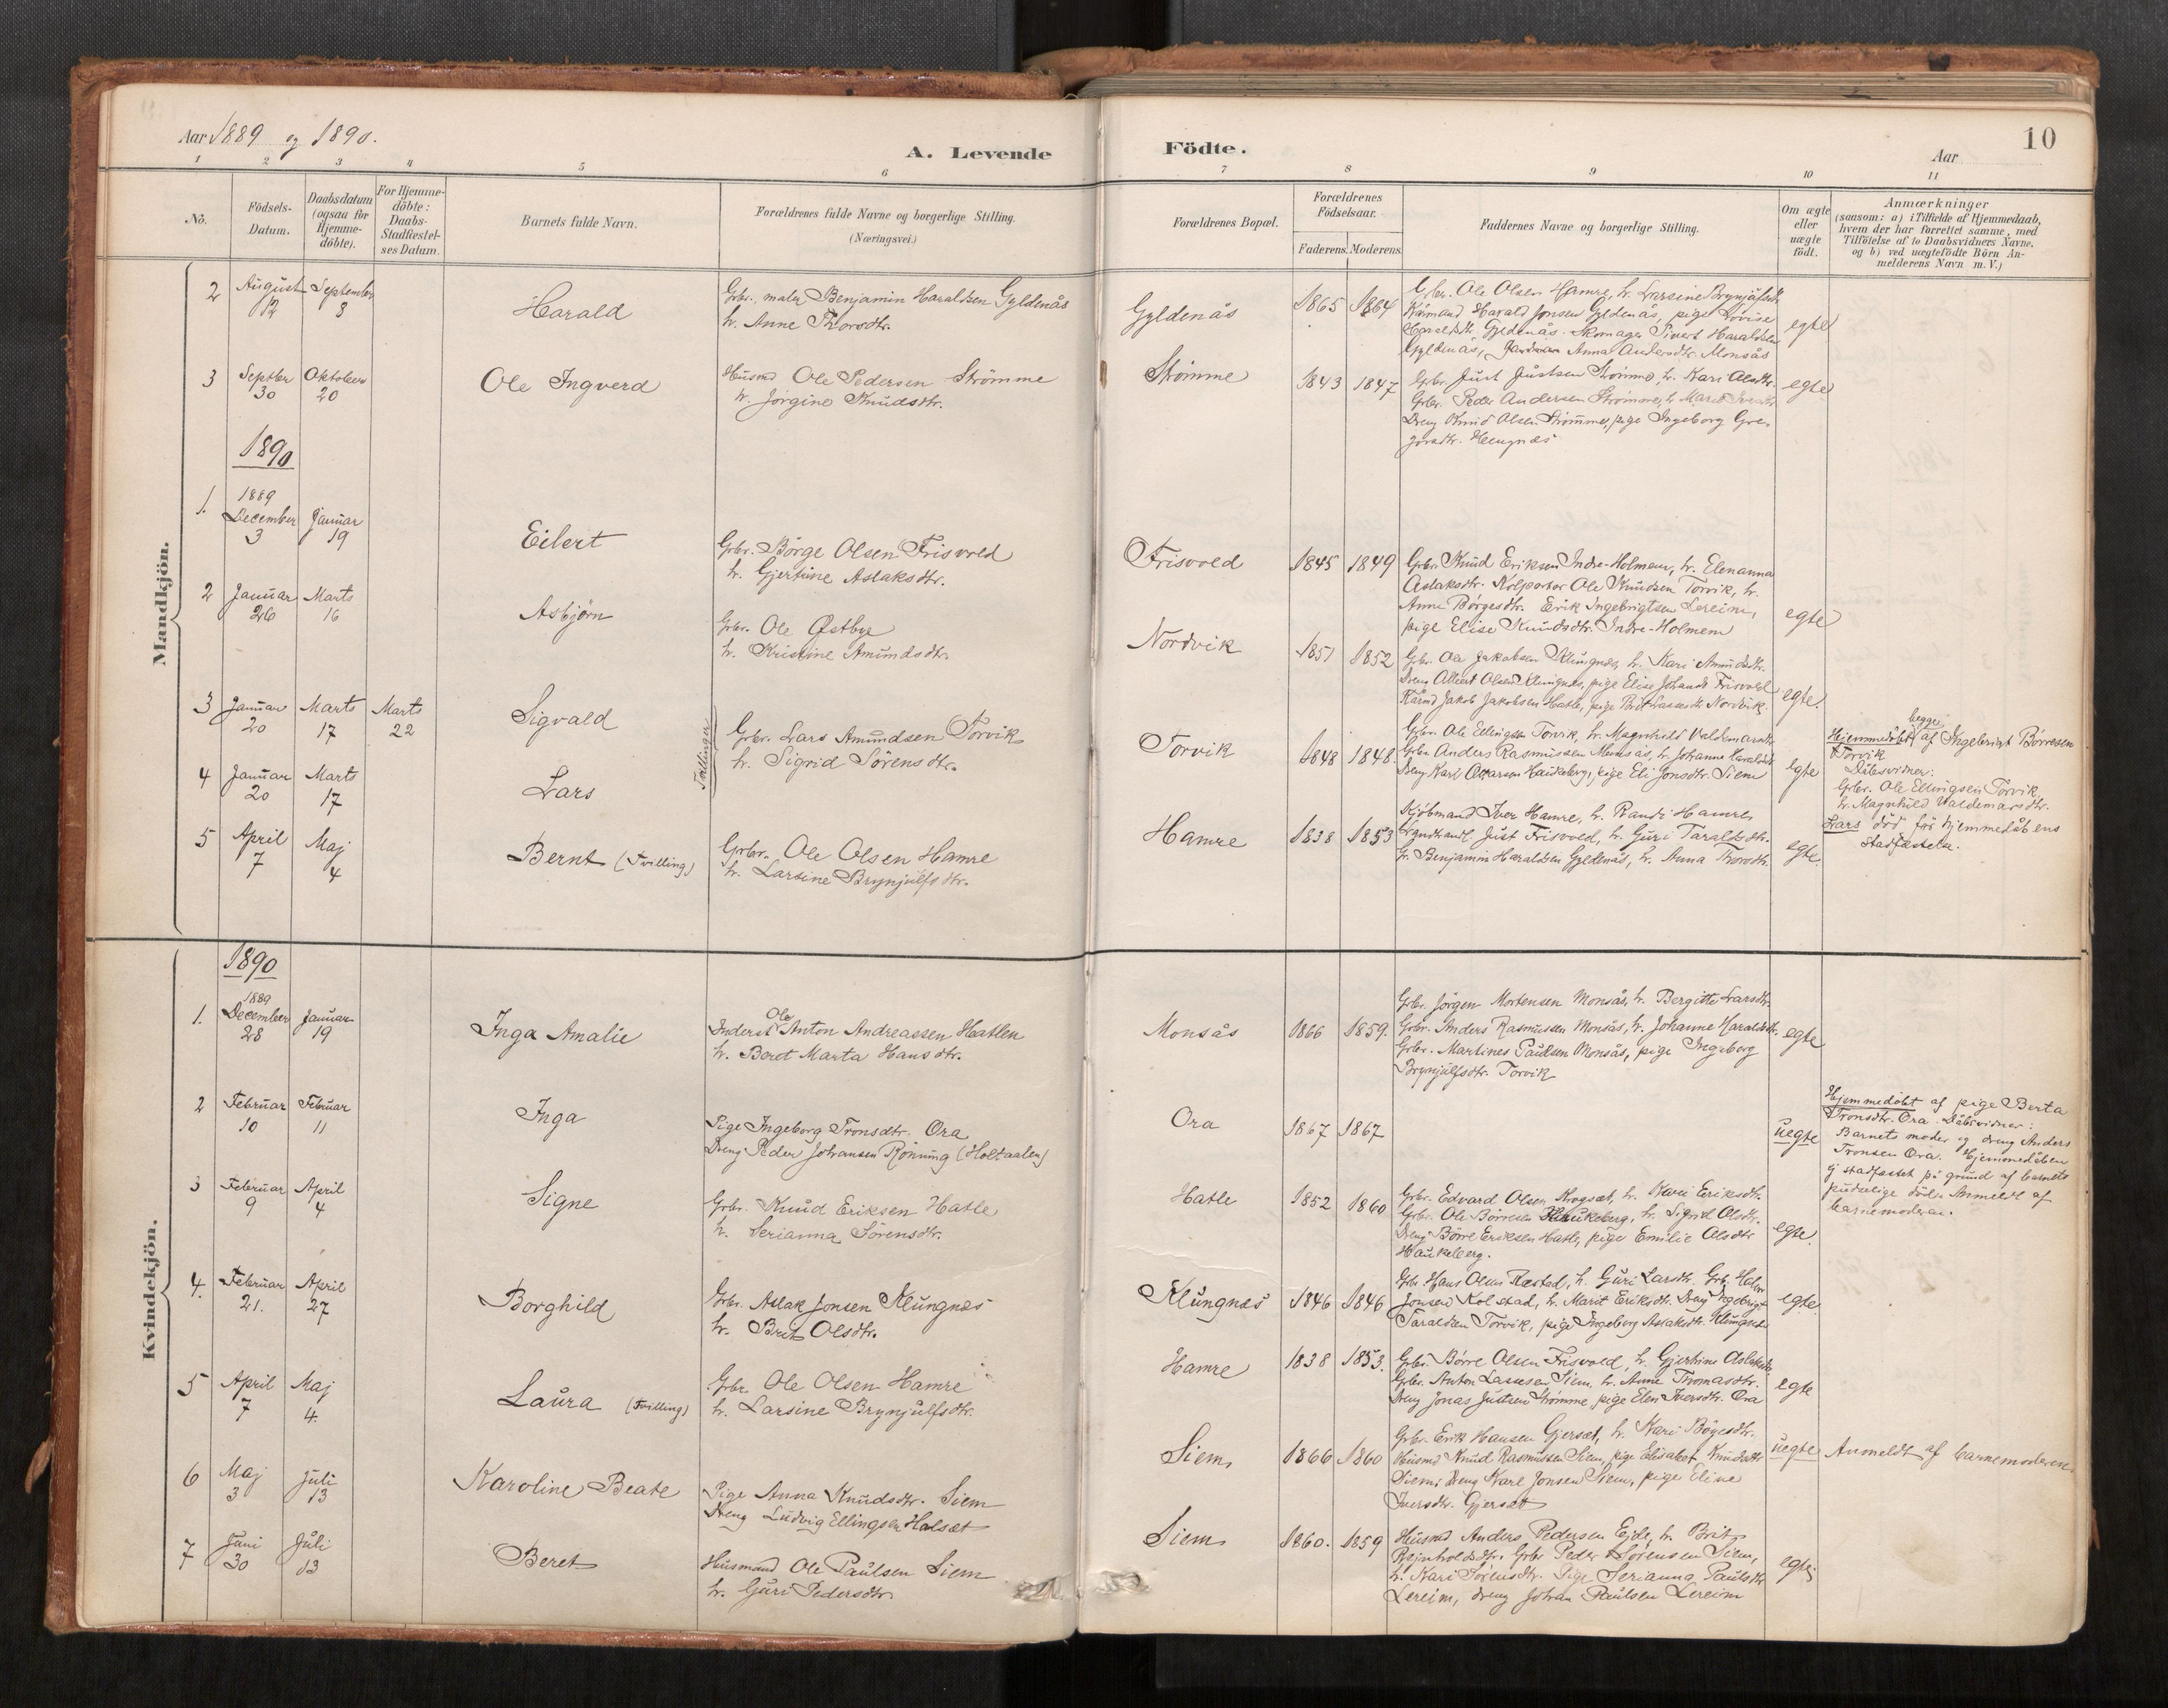 Aar 1889 og 1890.
A. Levende Födte.
Aar
10
1 2 3 4 5 6 7 8 9 10 11
No.
Födsels-Datum.
Daabsdatum (ogsaa for Hjemme-döbte).
For Hjemme-döbte: Daabs-Stadfæstel-ses Datum.
Barnets fulde Navn.
Forældrenes fulde Navne og borgerlige Stilling.
(Næringsvei.)
Forældrenes Bopæl.
Forældrenes Födselsaar.
Faderens. Moderens.
Faddernes Navne og borgerlige Stilling.
Om ægte eller uægte födt.
Anmærkninger
(saasom: a) i Tilfælde af Hjemmedaab,
hvem der har forrettet samme, med
Tilföielse af to Daabsvidners Navne,
og b) ved uægtefödte Börn An-
melderens Navn m. V.)
Mandkjön.
2 August 12 September 8 Harald
Grbr., maler Benjamin Haraldsen Gyldenås
h. Anne Thorsdtr.
Gyldenås 1865 1864
Grbr. Ole Olsen Hamre, h. Larsine Brynjulfsdtr.
Harald Jonsen Gyldenås, pige Lovise
Haraldsdtr. Gyldenås. Skomager Sivert Haraldsen
Gyldenås, Anna Andersdtr. Monsås
egte
3 Septbr 30 Oktober 20 Ole Ingverd
Husmd Ole Pedersen Strömme
h. Jorgine Knudsdtr.
Strömme 1843 1847
Grbr. Just Justsen Strömme, h. Kari Olsdtr.
Grbr. Peder Andersen Strömme, h. Marit
Dreng Knud Olsen Strömme, pige Ingeborg Gre-
gorsdtr. Hengnæs
egte
1890
1. 1889 December 3 Januar 19 Eilert
Grbr. Börge Olsen Frisvold
h. Gjertine Aslaksdtr.
Frisvold 1845 1849
Grbr. Knud Eriksen Indre-Holmem, h. Elenanna
Aslaksdtr. Kolportør Ole Knudsen Torvik, h.
Anne Börgesdtr. Erik Ingebrigtsen Lereim,
pige Elise Knudsdtr. Indre-Holmem
egte
2 Januar 26 Marts 16 Asbjörn
Grbr. Ole Østbye
h. Kristine Amundsdtr.
Nordvik 1851 1852
Grbr. Ole Jakobsen Klungnes, h. Kari Amundsdtr.
Dreng Albert Olsen Klungnes, pige Elise Johansdtr. Frisvold
Jakob Jakobsen Hatle, pige Brit Larsdtr Nordvik.
egte.
3 Januar 20 Marts 17 Marts 22 Sigvald
Tvillinger
Grbr. Lars Amundsen Torvik
h. Sigrid Sörensdtr.
4 Januar 20 Marts 17 Lars
Torvik 1848 1848.
Grbr. Ole Ellingsen Torvik, h. Magnhild Valdemarsdtr
Grbr. Anders Rasmussen Monsås, h. Johanne Haraldsdtr
Dreng Karl Haukeberg, pige Eli Jonsdtr. Siem
egte
Hjemmedöbt begge af Ingebrigt Börresen
Torvik
Dåbsvidner:
Grbr. Ole Ellingsen Torvik,
h. Magnhild Valdemarsdtr.
Lars död för hjemmedåbens
stadfæstelse.
5 April 7 Maj 4 Bernt (Tvilling)
Grbr. Ole Olsen Hamre
h. Larsine Brynjulfsdtr.
Hamre 1838 1853
Kjöbmand Iver Hamre, h. Randi Hamre
Just Frisvold, h. Guri Taraldsdtr.
Benjamin Haraldsen Gyldenås, h. Anna Thorsdtr.
egte.
Kvindekjön.
1890
1. 1889 December 28 Januar 19 Inga Amalie
Inderst Ole Anton Andreassen Hatlen
h. Beret Marta Hansdtr.
Monsås 1866 1859.
Grbr. Jörgen Mortensen Monsås, h. Bergitte Larsdtr.
Grbr. Anders Rasmussen Monsås, h. Johanne Haraldsdtr.
Grbr. Martines Paulsen Monsås, pige Ingeborg
Brynjulfsdtr. Torvik
egte
2 Februar 10 Februar 11 Inga
Pige Ingeborg Tronsdtr. Ora
Dreng Peder Johansen Rönning (Holtaalen)
Ora 1867 1867
uegte
Hjemmedöbt af pige Berta
Tronsdtr. Ora. Dåbsvidner:
Barnets moder og dreng Anders
Tronsen Ora. Hjemmedåben
ej stadfæstet på grund af barnets
pludselige död. Anmeldt af
barnemoderen.
3 Februar 9 April 4 Signe
Grbr. Knud Eriksen Hatle
h. Serianna Sörensdtr.
Hatle 1852 1860
Grbr. Edvard Olsen Krogsæt, h. Kari Eriksdtr.
Grbr. Ole Börresen Haukeberg, h. Sigrid Olsdtr.
Dreng Börre Eriksen Hatle, pige Emilie Olsdtr
Haukeberg.
egte.
4. Februar 21. April 27 Borghild
Grbr. Aslak Jonsen Klungnes
h. Brit Olsdtr.
Klungnes 1846 1846
Grbr. Hans Olsen Ræstad, h. Guri Larsdtr. Grb. Halvor
Jonsen Kolstad, h. Marit Eriksdtr. Dreng Ingebrigt
Taraldsen Torvik, pige Ingeborg Aslaksdtr. Klungnes
egte.
5 April 7 Maj 4. Laura (Tvilling)
Grbr. Ole Olsen Hamre
h. Larsine Brynjulfsdtr.
Hamre 1838 1853.
Grbr. Börre Olsen Frisvold, h. Gjertine Aslaksdtr
Grbr. Anton Lassesen Siem, h. Anne Thomasdtr.
Dreng Jonas Justsen Strömme, pige Elen Iversdtr. Ora
egte
6 Maj 3 Juli 13 Karoline Beate
Pige Anna Knudsdtr. Siem
Dreng Ludvig Ellingsen Halsæt
Siem 1866 1860
Grbr. Erik Hansen Gjersæt, h. Kari Bögesdtr.
Husmd Knud Rasmussen Siem, pige Elisabet Knudsdtr
Siem. Dreng Karl Jonsen Siem, pige Eline
Iversdtr. Gjersæt
uegte
Anmeldt af barnemoderen.
7 Juni 30 Juli 13 Beret
Husmand Ole Paulsen Siem
h. Guri Pedersdtr
Siem 1860. 1859
Husmd Anders Pedersen Eide, h. Brit
Reinholdsdtr. Grbr Peder Sörensen Siem,
h. Kari Sörensdtr. Pige Serianna Paulsdtr
Lereim, dreng Johan Paulsen Lereim
egte